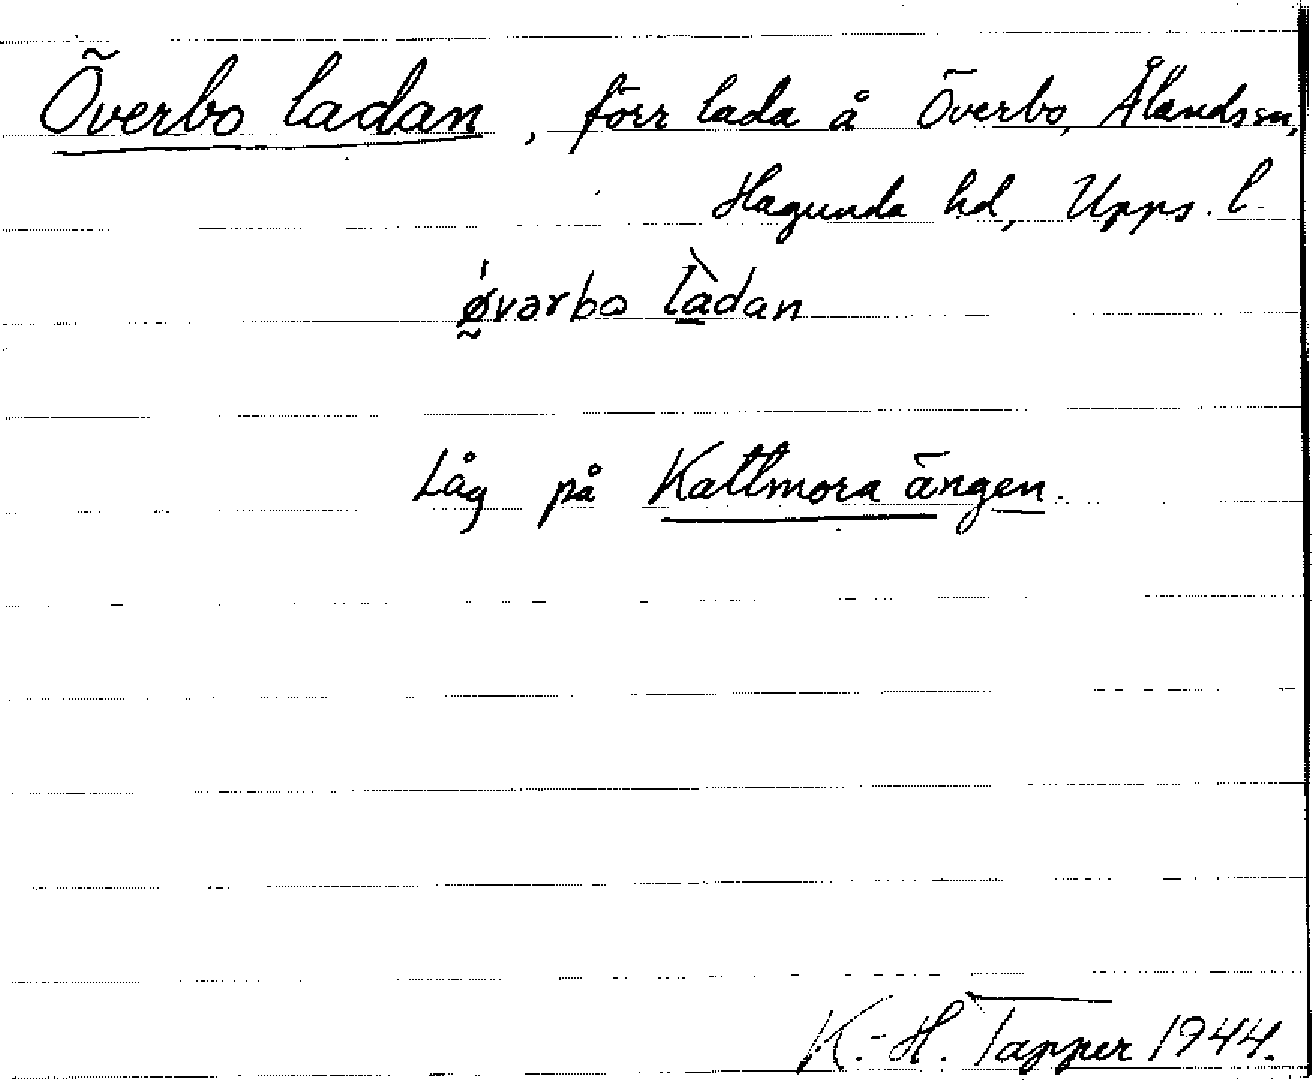 Överbo ladan, förr lada å Överbo, Ålands sn,
Hagunda hd, Upps. l
ǿvərbo làdan
Låg på Kattmora ängen.
K.-H. Tapper 1944.